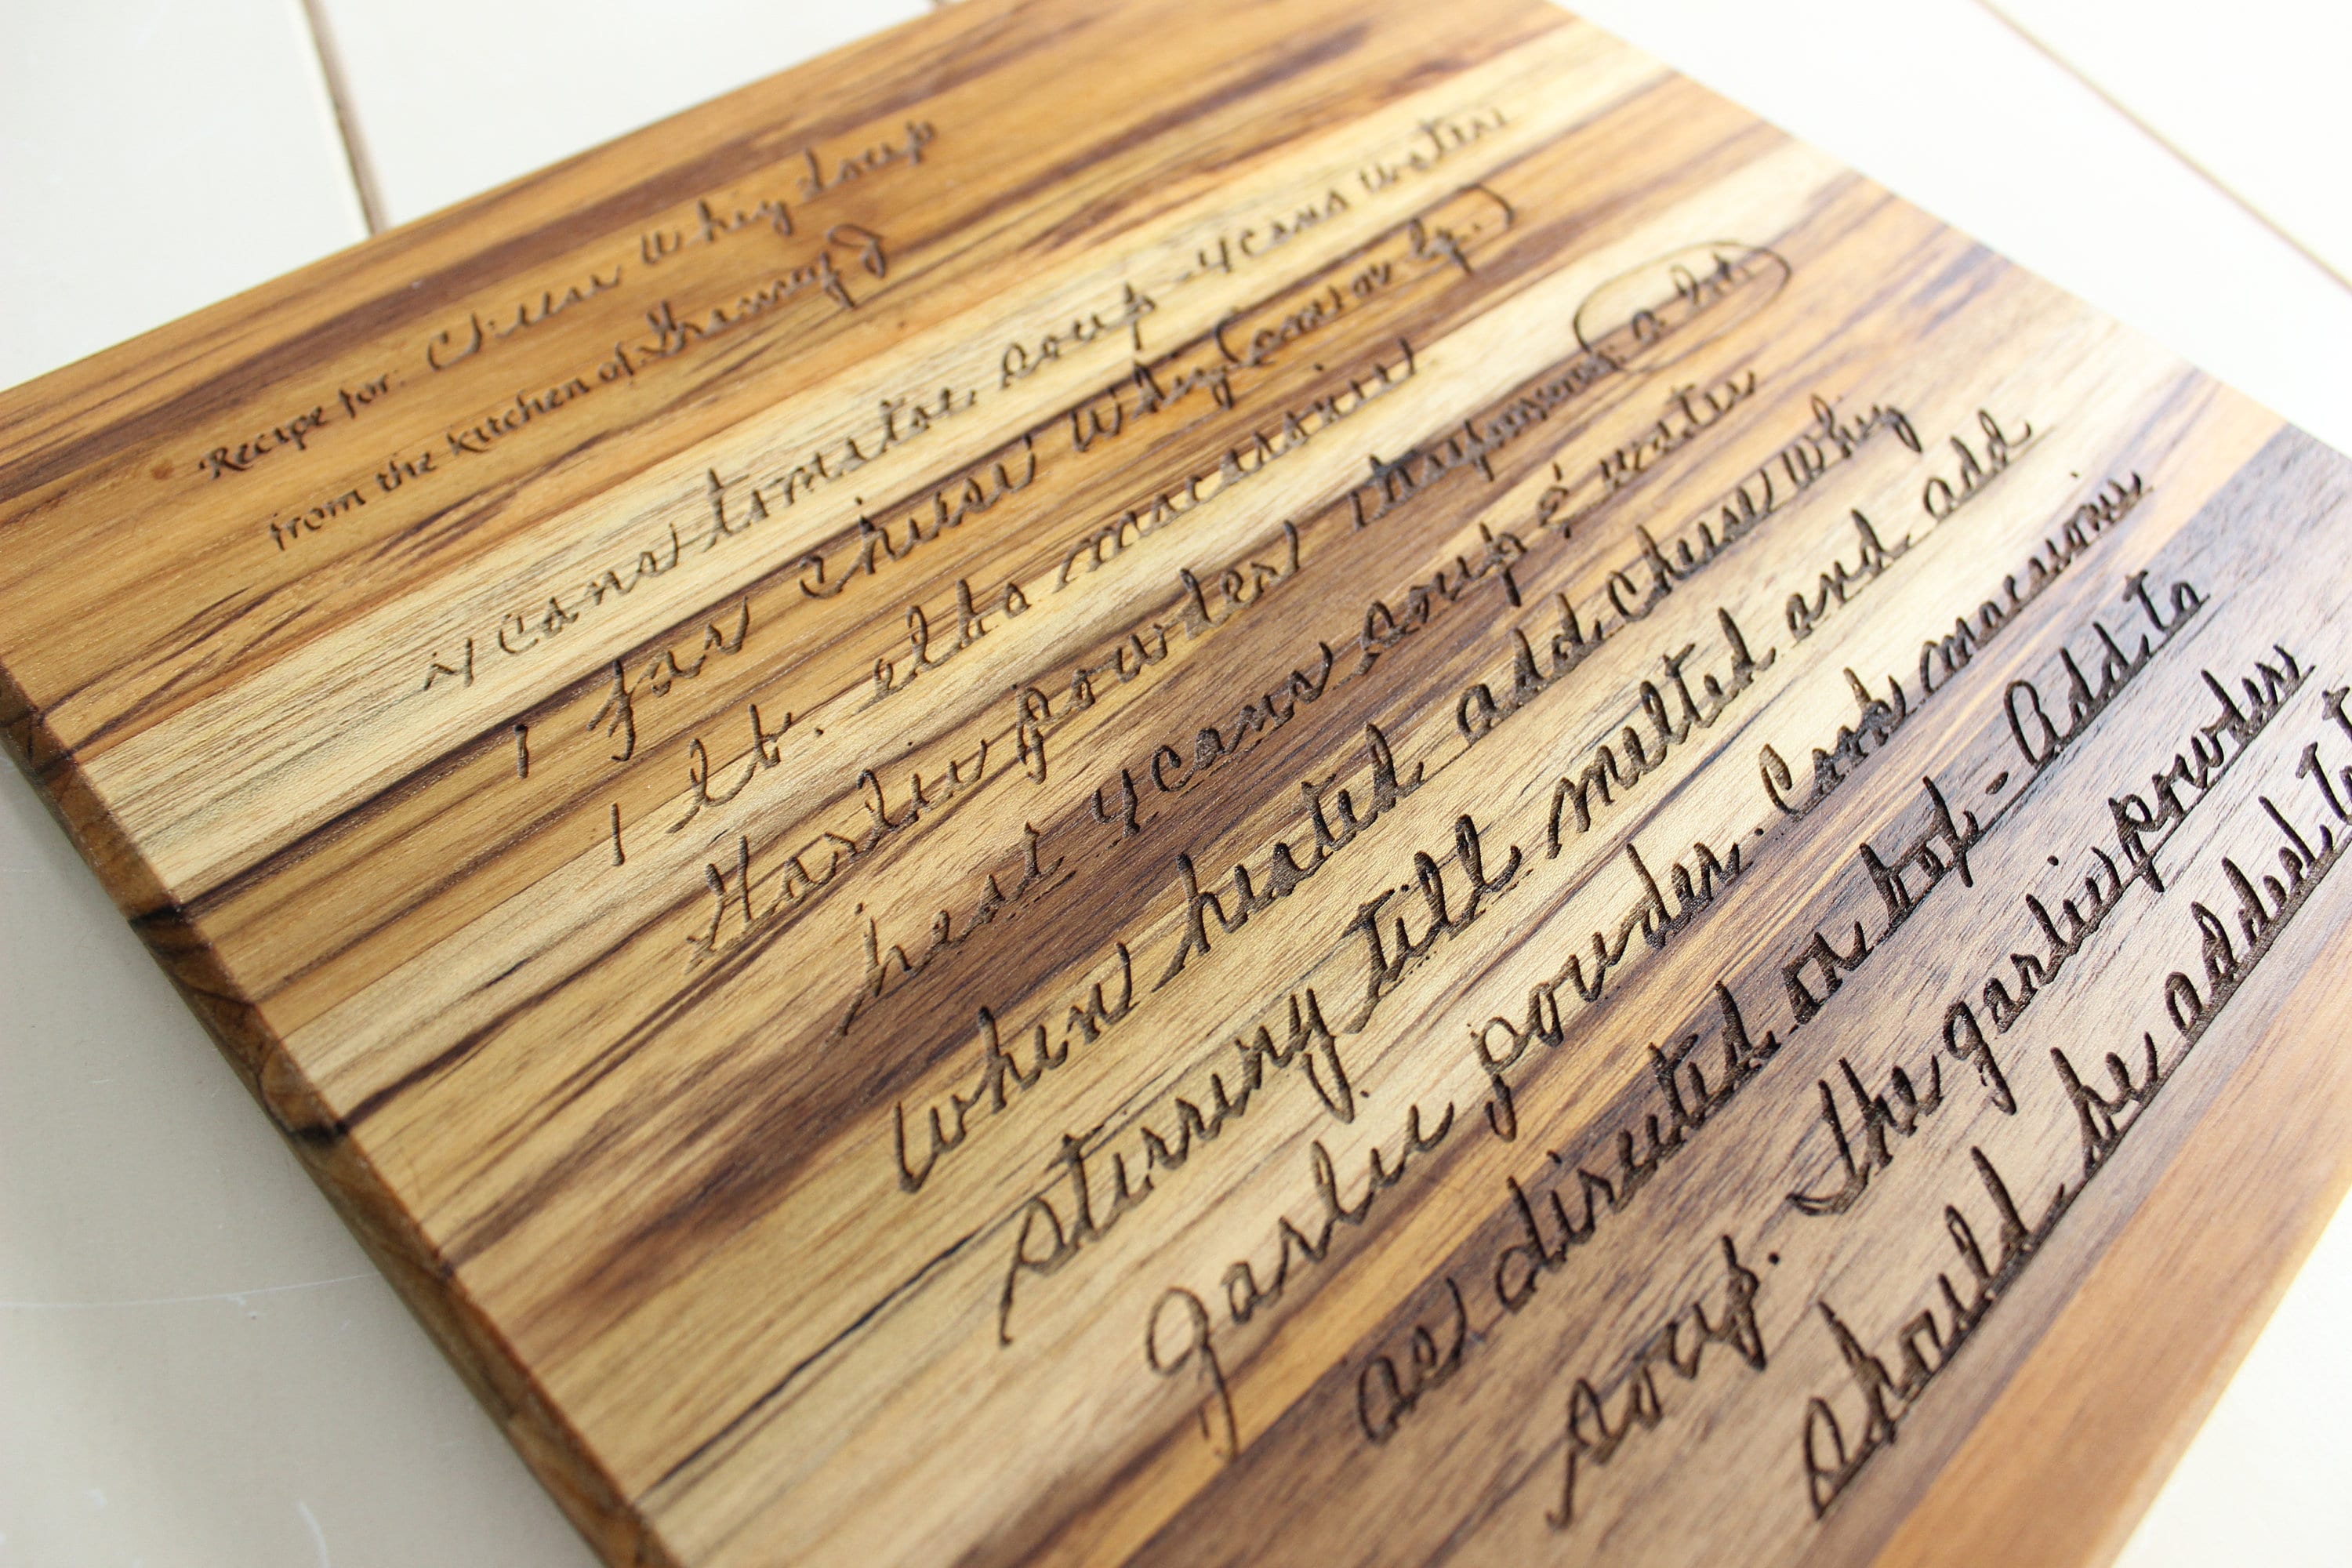 Recipe for: Cheese Whiz Soup
from the kitchen of: Grammy J
4 cans tomatoe soup - 4 cans water
1 jar cheese whiz (
1 lb. elbo macaroni
Garlic powder (a lot)
heat 4 cans soup & water
when heated add cheese whiz
stirring till melted and add
garlic powder. Cook macaroni
as directed on box - Add to
soup. The garlic powder
should be added to